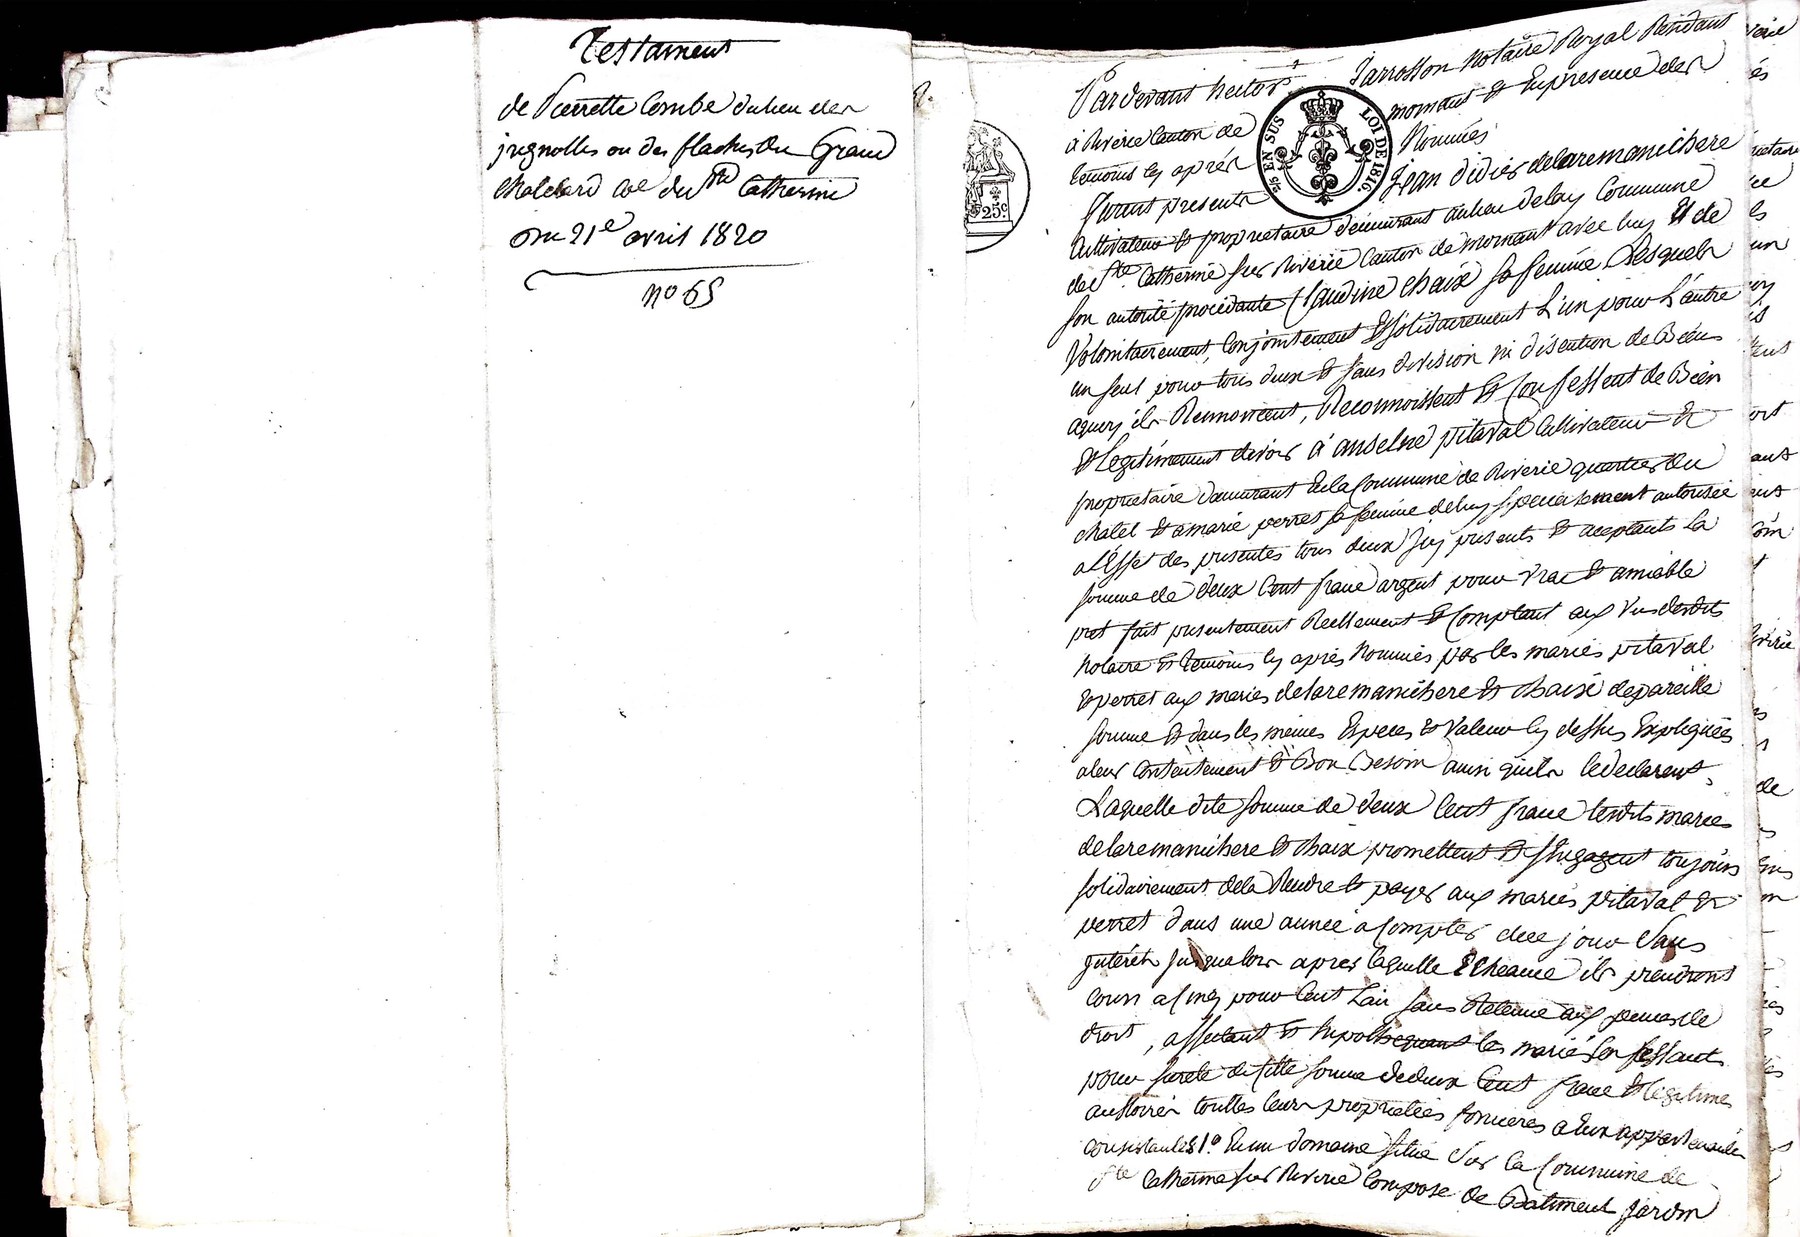 Testament
de Pierrette Combe du lieu des
jugnolles ou des flaches du Grand
Chalchard Cne de Ste Catherine
du 21e avril 1820
no 65
25c
25c EN SUS
LOI DE 1816.
Pardevant hector Jarrosson Notaire Royal Résidant
à Riverie Canton de mornant Et En presence des
temoins cy aprés Nommés
furent presents Jean Didier delaremanichere
Cultivateur Et proprietaire demeurant au lieu de lay Commune
de Ste Catherine sur Riverie Canton de mornant avec luy Et de
son autorité procédante Claudine Chaix sa femme Lesquels
Volontairement, Conjointement Et solidairement L'un pour L'autre
un seul pour tous deux Et sans division ni discution de Biens
aquoy ils Renoncent, Reconnoissent Et Confessent de Bien
Et Legitimement devoir à anselme pitaval Cultivateur Et
proprietaire demeurant En la Commune de Riverie quartier du
Chatel Et a marie perret sa femme de luy specialement autorisée
a L'Effet des presentes tous deux Icy presents Et aceptants la
somme de deux Cent franc argent pour vrai Et amiable
pret fait presentement Reellement Et Comptant aux vus desdits
Notaire Et temoins cy aprés Nommés par les mariés pitaval
Et perret aux mariés delaremanichere Et Chaix de pareille
somme Et dans les mêmes Especes Et Valeur cy dessus Expliquées
a leur Contentement Et Bon Besoin ainsi quils le declarent,
Laquelle dite somme de deux Cent franc lesdits mariés
delaremanichere Et Chaix promettent Et s'Engagent toujours
solidairement de la Rendre Et payer aux mariés pitaval Et
perret dans une année a Compter de ce jour sans
Intérét jusqualors apres laquelle Echeance ils prendront
Cours a Cinq pour Cent L'an sans Retenue aux peines de
droit, affectant Et hypothequant les mariés Confessants
pour sureté de cette somme de deux Cent franc Et Legitimes
acessoires touttes leurs proprietées foncieres a Eux appartenantes
Consistantes 1o. En un domaine situé sur la Commune de
Ste Catherine sur Riverie Composé de Batiment Jardin